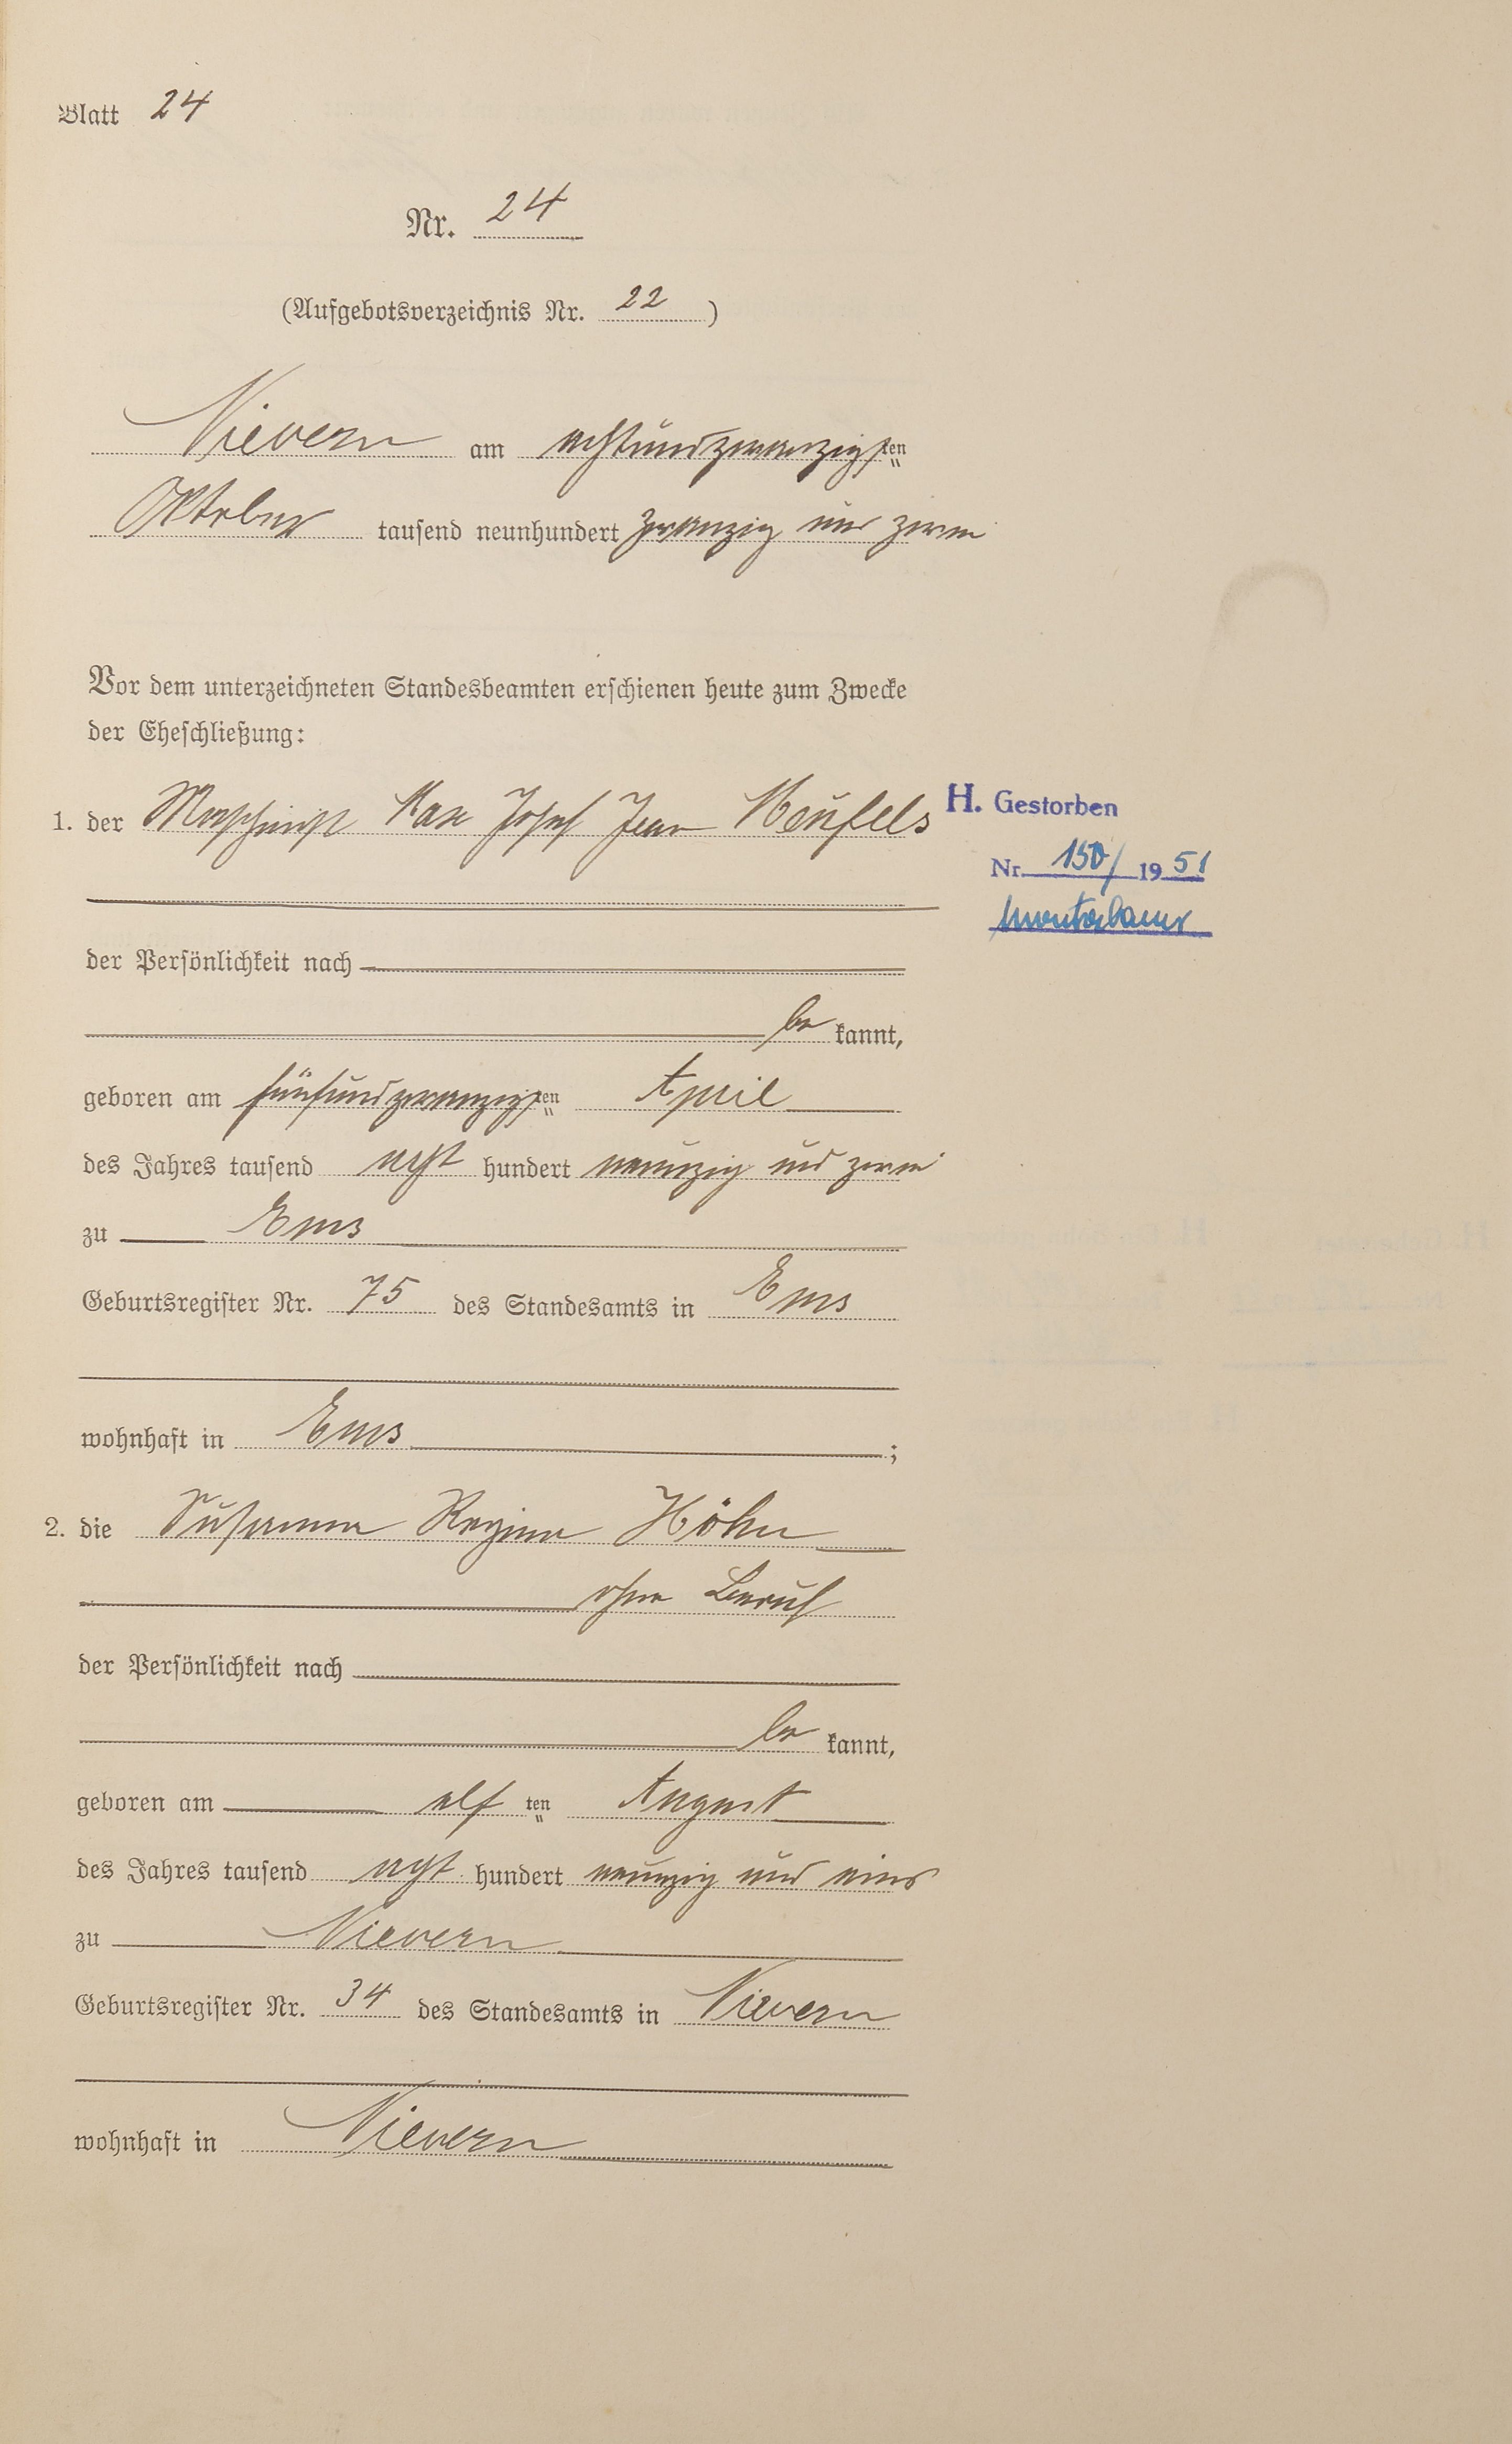 Blatt 24
Nr. 24
(Aufgebotsverzeichnis Nr. 22)
Nievern am achtundzwanzigsten
Oktober tausend neunhundert zwanzig und zwei
Vor dem unterzeichneten Standesbeamten erschienen heute zum Zwecke
der Eheschließung:
1. der Maschinist Max Josef Jean Meufels
H. Gestorben
Nr. 150/1951
Montabaur
der Persönlichkeit nach
be kannt,
geboren am fünfundzwanzigsten April
des Jahres tausend acht hundert neunzig und zwei
zu Ems
Geburtsregister Nr. 75 des Standesamts in Ems
wohnhaft in Ems ;
2. die Susanna Regina Höhn
ohne Beruf
der Persönlichkeit nach
be kannt,
geboren am elf ten August
des Jahres tausend acht hundert neunzig und eins
zu Nievern
Geburtsregister Nr. 34 des Standesamts in Nievern
wohnhaft in Nievern